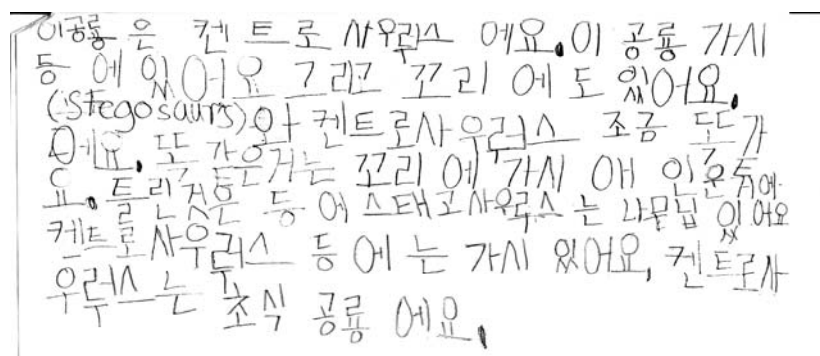 이공룡 은 켄 트 로 사우러스 에요. 이 공룡 가시
등 에 있어요 그리고 꼬리 에 도 있어요.
(Stegosaurs) 와 켄트로사우러스 조금 또 가
에요. 또 가은거는 꼬리 에 가시 애
요. 틀린것은 등 에 스태고사우루스 는 나뭇닢 있어요
켄트로사우루스 등 에 는 가시 있어요, 켄트로사
우루스는 초식 공룡 에요.